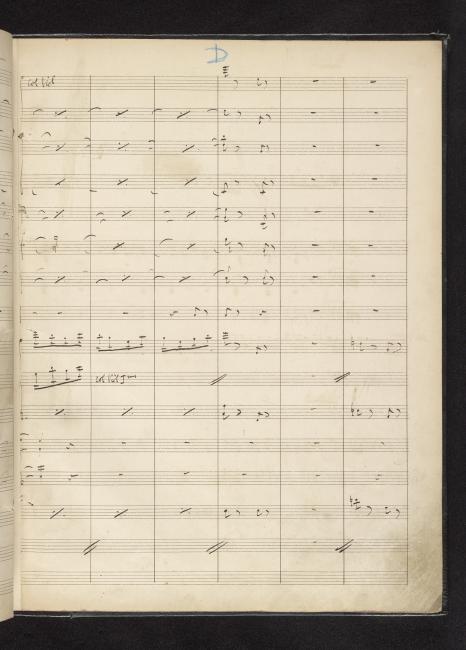 D
col Viol
col Viol I mo